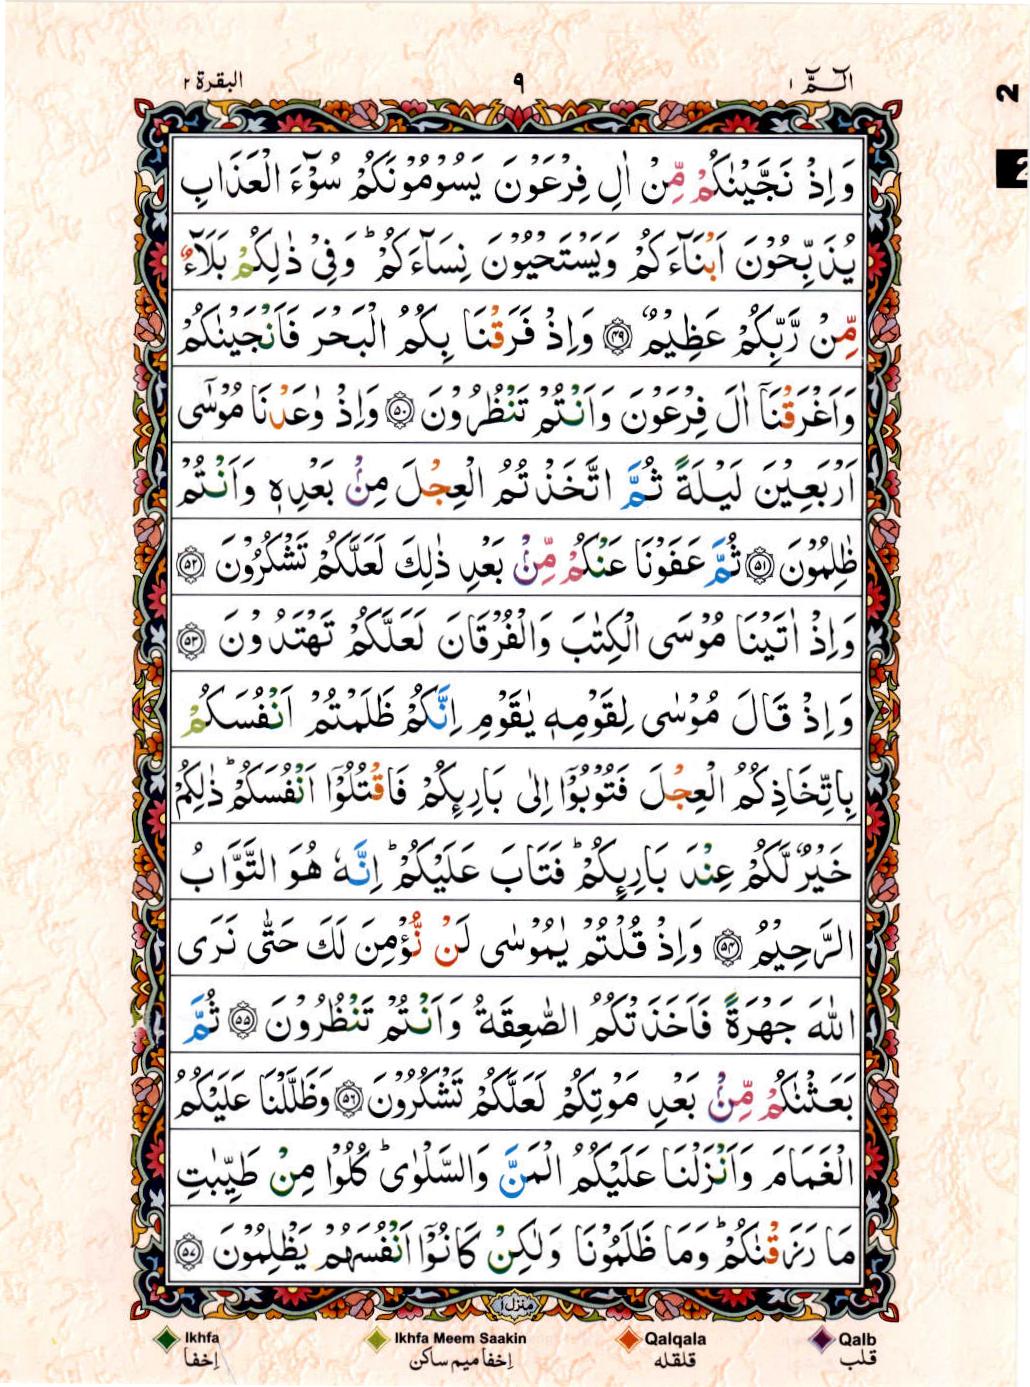 البقرة ٢
٩
الٓمّٓ ١
2
2
وَاِذْ نَجَّيْنٰكُمْ مِّنْ اٰلِ فِرْعَوْنَ يَسُوْمُوْنَكُمْ سُوْٓءَ الْعَذَابِ
يُذَبِّحُوْنَ اَبْنَآءَكُمْ وَيَسْتَحْيُوْنَ نِسَآءَكُمْ ؕ وَفِيْ ذٰلِكُمْ بَلَآءٌ
مِّنْ رَّبِّكُمْ عَظِيْمٌ ۝٤٩ وَاِذْ فَرَقْنَا بِكُمُ الْبَحْرَ فَاَنْجَيْنٰكُمْ
وَاَغْرَقْنَآ اٰلَ فِرْعَوْنَ وَاَنْتُمْ تَنْظُرُوْنَ ۝٥٠ وَاِذْ وٰعَدْنَا مُوْسٰٓى
اَرْبَعِيْنَ لَيْلَةً ثُمَّ اتَّخَذْتُمُ الْعِجْلَ مِنْۢ بَعْدِهٖ وَاَنْتُمْ
ظٰلِمُوْنَ ۝٥١ ثُمَّ عَفَوْنَا عَنْكُمْ مِّنْۢ بَعْدِ ذٰلِكَ لَعَلَّكُمْ تَشْكُرُوْنَ ۝٥٢
وَاِذْ اٰتَيْنَا مُوْسَى الْكِتٰبَ وَالْفُرْقَانَ لَعَلَّكُمْ تَهْتَدُوْنَ ۝٥٣
وَاِذْ قَالَ مُوْسٰى لِقَوْمِهٖ يٰقَوْمِ اِنَّكُمْ ظَلَمْتُمْ اَنْفُسَكُمْ
بِاتِّخَاذِكُمُ الْعِجْلَ فَتُوْبُوْٓا اِلٰى بَارِئِكُمْ فَاقْتُلُوْٓا اَنْفُسَكُمْ ؕ ذٰلِكُمْ
خَيْرٌ لَّكُمْ عِنْدَ بَارِئِكُمْ ؕ فَتَابَ عَلَيْكُمْ ؕ اِنَّهٗ هُوَ التَّوَّابُ
الرَّحِيْمُ ۝٥٤ وَاِذْ قُلْتُمْ يٰمُوْسٰى لَنْ نُّؤْمِنَ لَكَ حَتّٰى نَرَى
اللّٰهَ جَهْرَةً فَاَخَذَتْكُمُ الصّٰعِقَةُ وَاَنْتُمْ تَنْظُرُوْنَ ۝٥٥ ثُمَّ
بَعَثْنٰكُمْ مِّنْۢ بَعْدِ مَوْتِكُمْ لَعَلَّكُمْ تَشْكُرُوْنَ ۝٥٦ وَظَلَّلْنَا عَلَيْكُمُ
الْغَمَامَ وَاَنْزَلْنَا عَلَيْكُمُ الْمَنَّ وَالسَّلْوٰى ؕ كُلُوْا مِنْ طَيِّبٰتِ
مَا رَزَقْنٰكُمْ ؕ وَمَا ظَلَمُوْنَا وَلٰكِنْ كَانُوْٓا اَنْفُسَهُمْ يَظْلِمُوْنَ ۝٥٧
منزل ١
Ikhfa
اِخفا
Ikhfa Meem Saakin
اِخفا میم ساکن
Qalqala
قلقله
Qalb
قلب